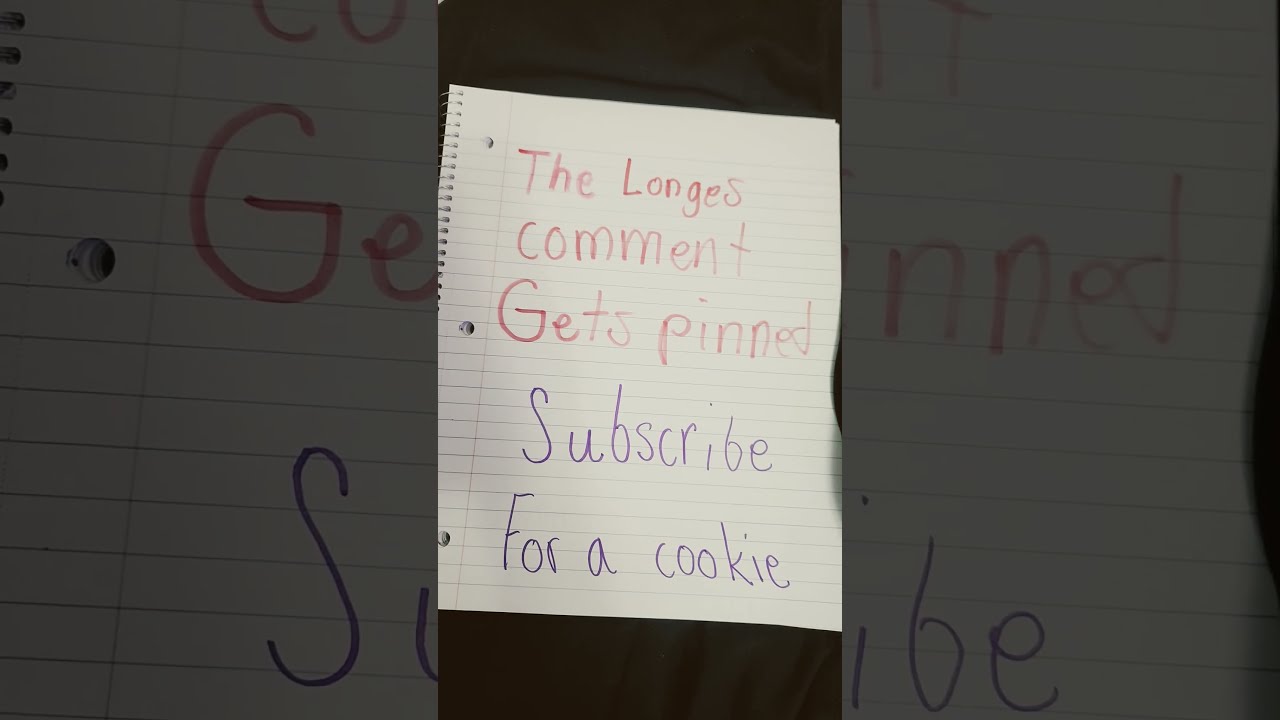 The Longes
comment
Gets pinned
Subscribe
For a cookie